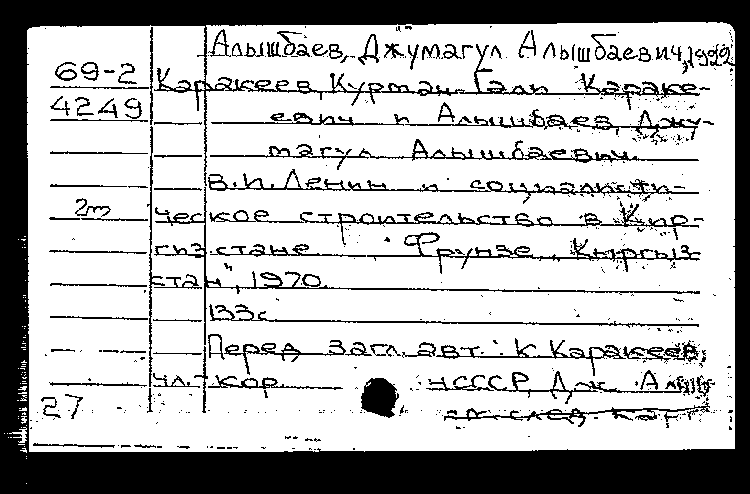 Алышбаев, Джумагул Алышбаевич, 1922
69-2
Каракеев, Курман-Гали Караке-
4249
евич и Алышбаев, Джу-
магул Алышбаевич.
В.И. Ленин и социалисти-
2т
ческое строительство в Кир-
гизстане. Фрунзе, "Кыргыз-
стан", 1970.
133с
Перед загл. авт.: К. Каракеев,
чл.-кор. Дж. Алыш
27
см. след. карт